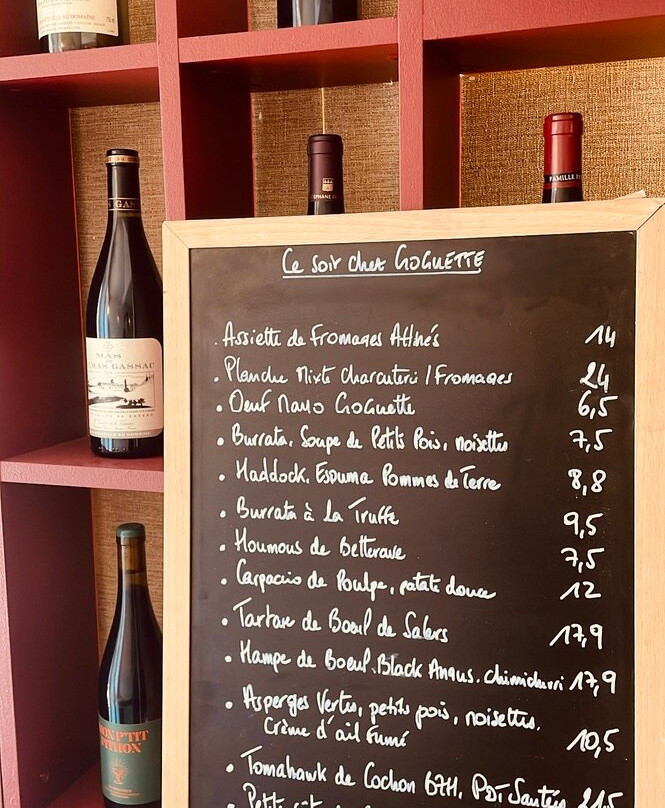 Ce soir chez GOGUETTE
. Assiette de Fromages Affinés 14
. Planche Mixte Charcuterie / Fromages 24
. Oeuf Mayo GoGuette 6,5
. Burrata, Soupe de Petits Pois, noisettes 7,5
. Haddock, Espuma Pommes de Terre 8,8
. Burrata à la Truffe 9,5
. Houmous de Betterave 7,5
. Carpaccio de Poulpe, patate douce 12
. Tartare de Boeuf de Salers 17,9
. Hampe de Boeuf. Black Angus. chimichurri 17,9
. Asperges Vertes, petits pois, noisettes,
Crème d'ail Fumé 10,5
. Tomahawk de Cochon
. Petite
MAS
GASSAC
FAMILLE